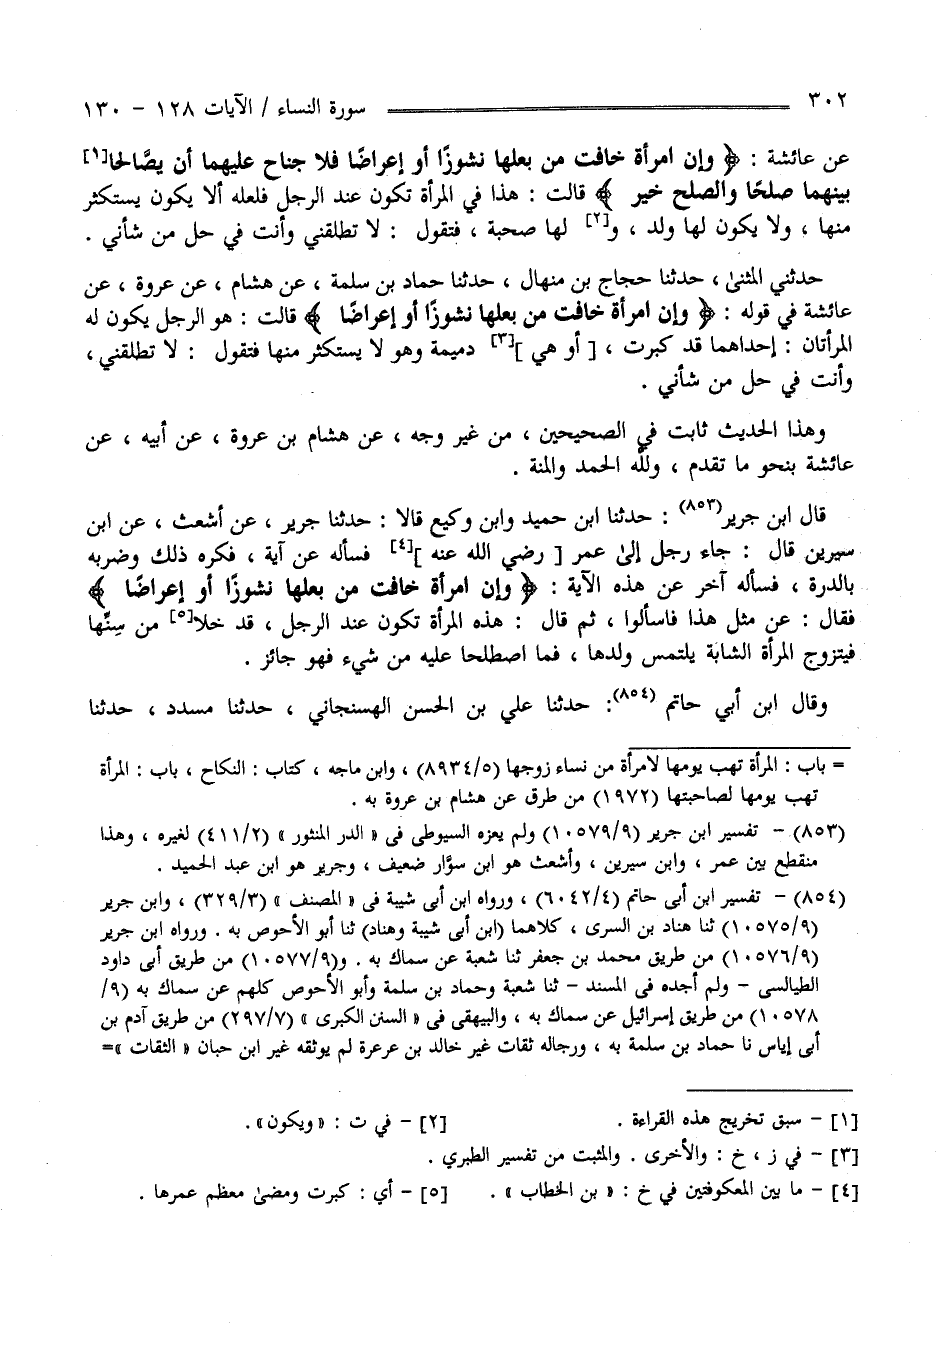 ٣٠٢ سورة النساء / الآيات ١٢٨ - ١٣٠
عن عائشة : ﴿ وإن امرأة خافت من بعلها نشوزًا أو إعراضًا فلا جناح عليهما أن يصَّالحا[١]
بينهما صلحًا والصلح خير ﴾ قالت : هذا في المرأة تكون عند الرجل فلعله ألا يكون يستكثر
منها ، ولا يكون لها ولد ، و[٢] لها صحبة ، فتقول : لا تطلقني وأنت في حل من شأني .
حدثني المثنىٰ ، حدثنا حجاج بن منهال ، حدثنا حماد بن سلمة ، عن هشام ، عن عروة ، عن
عائشة في قوله : ﴿ وإن امرأة خافت من بعلها نشوزًا أو إعراضًا ﴾ قالت : هو الرجل يكون له
المرأتان : إحداهما قد كبرت ، [ أو هي ][٣] دميمة وهو لا يستكثر منها فتقول : لا تطلقني ،
وأنت في حل من شأني .
وهذا الحديث ثابت في الصحيحين ، من غير وجه ، عن هشام بن عروة ، عن أبيه ، عن
عائشة بنحو ما تقدم ، ولله الحمد والمنة .
قال ابن جرير(٨٥٣) : حدثنا ابن حميد وابن وكيع قالا : حدثنا جرير ، عن أشعث ، عن ابن
سيرين قال : جاء رجل إلىٰ عمر [ رضي الله عنه ][٤] فسأله عن آية ، فكره ذلك وضربه
بالدرة ، فسأله آخر عن هذه الآية : ﴿ وإن امرأة خافت من بعلها نشوزًا أو إعراضًا ﴾
فقال : عن مثل هذا فاسألوا ، ثم قال : هذه المرأة تكون عند الرجل ، قد خلا[٥] من سِنِّها
فيتزوج المرأة الشابة يلتمس ولدها ، فما اصطلحا عليه من شيء فهو جائز .
وقال ابن أبي حاتم (٨٥٤): حدثنا علي بن الحسن الهسنجاني ، حدثنا مسدد ، حدثنا
= باب : المرأة تهب يومها لامرأة من نساء زوجها (٨٩٣٤/٥) ، وابن ماجه ، كتاب : النكاح ، باب : المرأة
تهب يومها لصاحبتها (١٩٧٢) من طرق عن هشام بن عروة به .
(٨٥٣) - تفسير ابن جرير (١٠٥٧٩/٩) ولم يعزه السيوطى فى « الدر المنثور » (٤١١/٢) لغيره ، وهذا
منقطع بين عمر ، وابن سيرين ، وأشعث هو ابن سؤار ضعيف ، وجرير هو ابن عبد الحميد .
(٨٥٤) - تفسير ابن أبى حاتم (٦٠٤٢/٤) ، ورواه ابن أبى شيبة فى « المصنف » (٣٢٩/٣) ، وابن جرير
(١٠٥٧٥/٩) ثنا هناد بن السرى ، كلاهما (ابن أبى شيبة وهناد) ثنا أبو الأحوص به . ورواه ابن جرير
(١٠٥٧٦/٩) من طريق محمد بن جعفر ثنا شعبة عن سماك به . و(١٠٥٧٧/٩) من طريق أبى داود
الطيالسى - ولم أجده فى المسند - ثنا شعبة وحماد بن سلمة وأبو الأحوص كلهم عن سماك به (٩/
١٠٥٧٨) من طريق إسرائيل عن سماك به ، والبيهقى فى « السنن الكبرى » (٢٩٧/٧) من طريق آدم بن
أبى إياس نا حماد بن سلمة به ، ورجاله ثقات غير خالد بن عرعرة لم يوثقه غير ابن حبان « الثقات »=
[١] - سبق تخريج هذه القراءة . [٢] - في ت : «ويكون».
[٣] - في ز ، خ : والأخرى . والمثبت من تفسير الطبري .
[٤] - ما بين المعكوفتين في خ : « بن الخطاب » . [٥] - أي : كبرت ومضىٰ معظم عمرها .